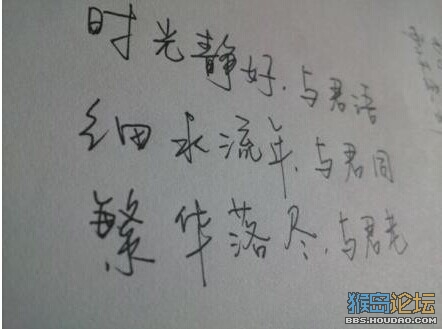 时光静好,与君语
细水流年,与君同
繁华落尽,与君老
猴岛论坛
BBS.HOUDAO.COM